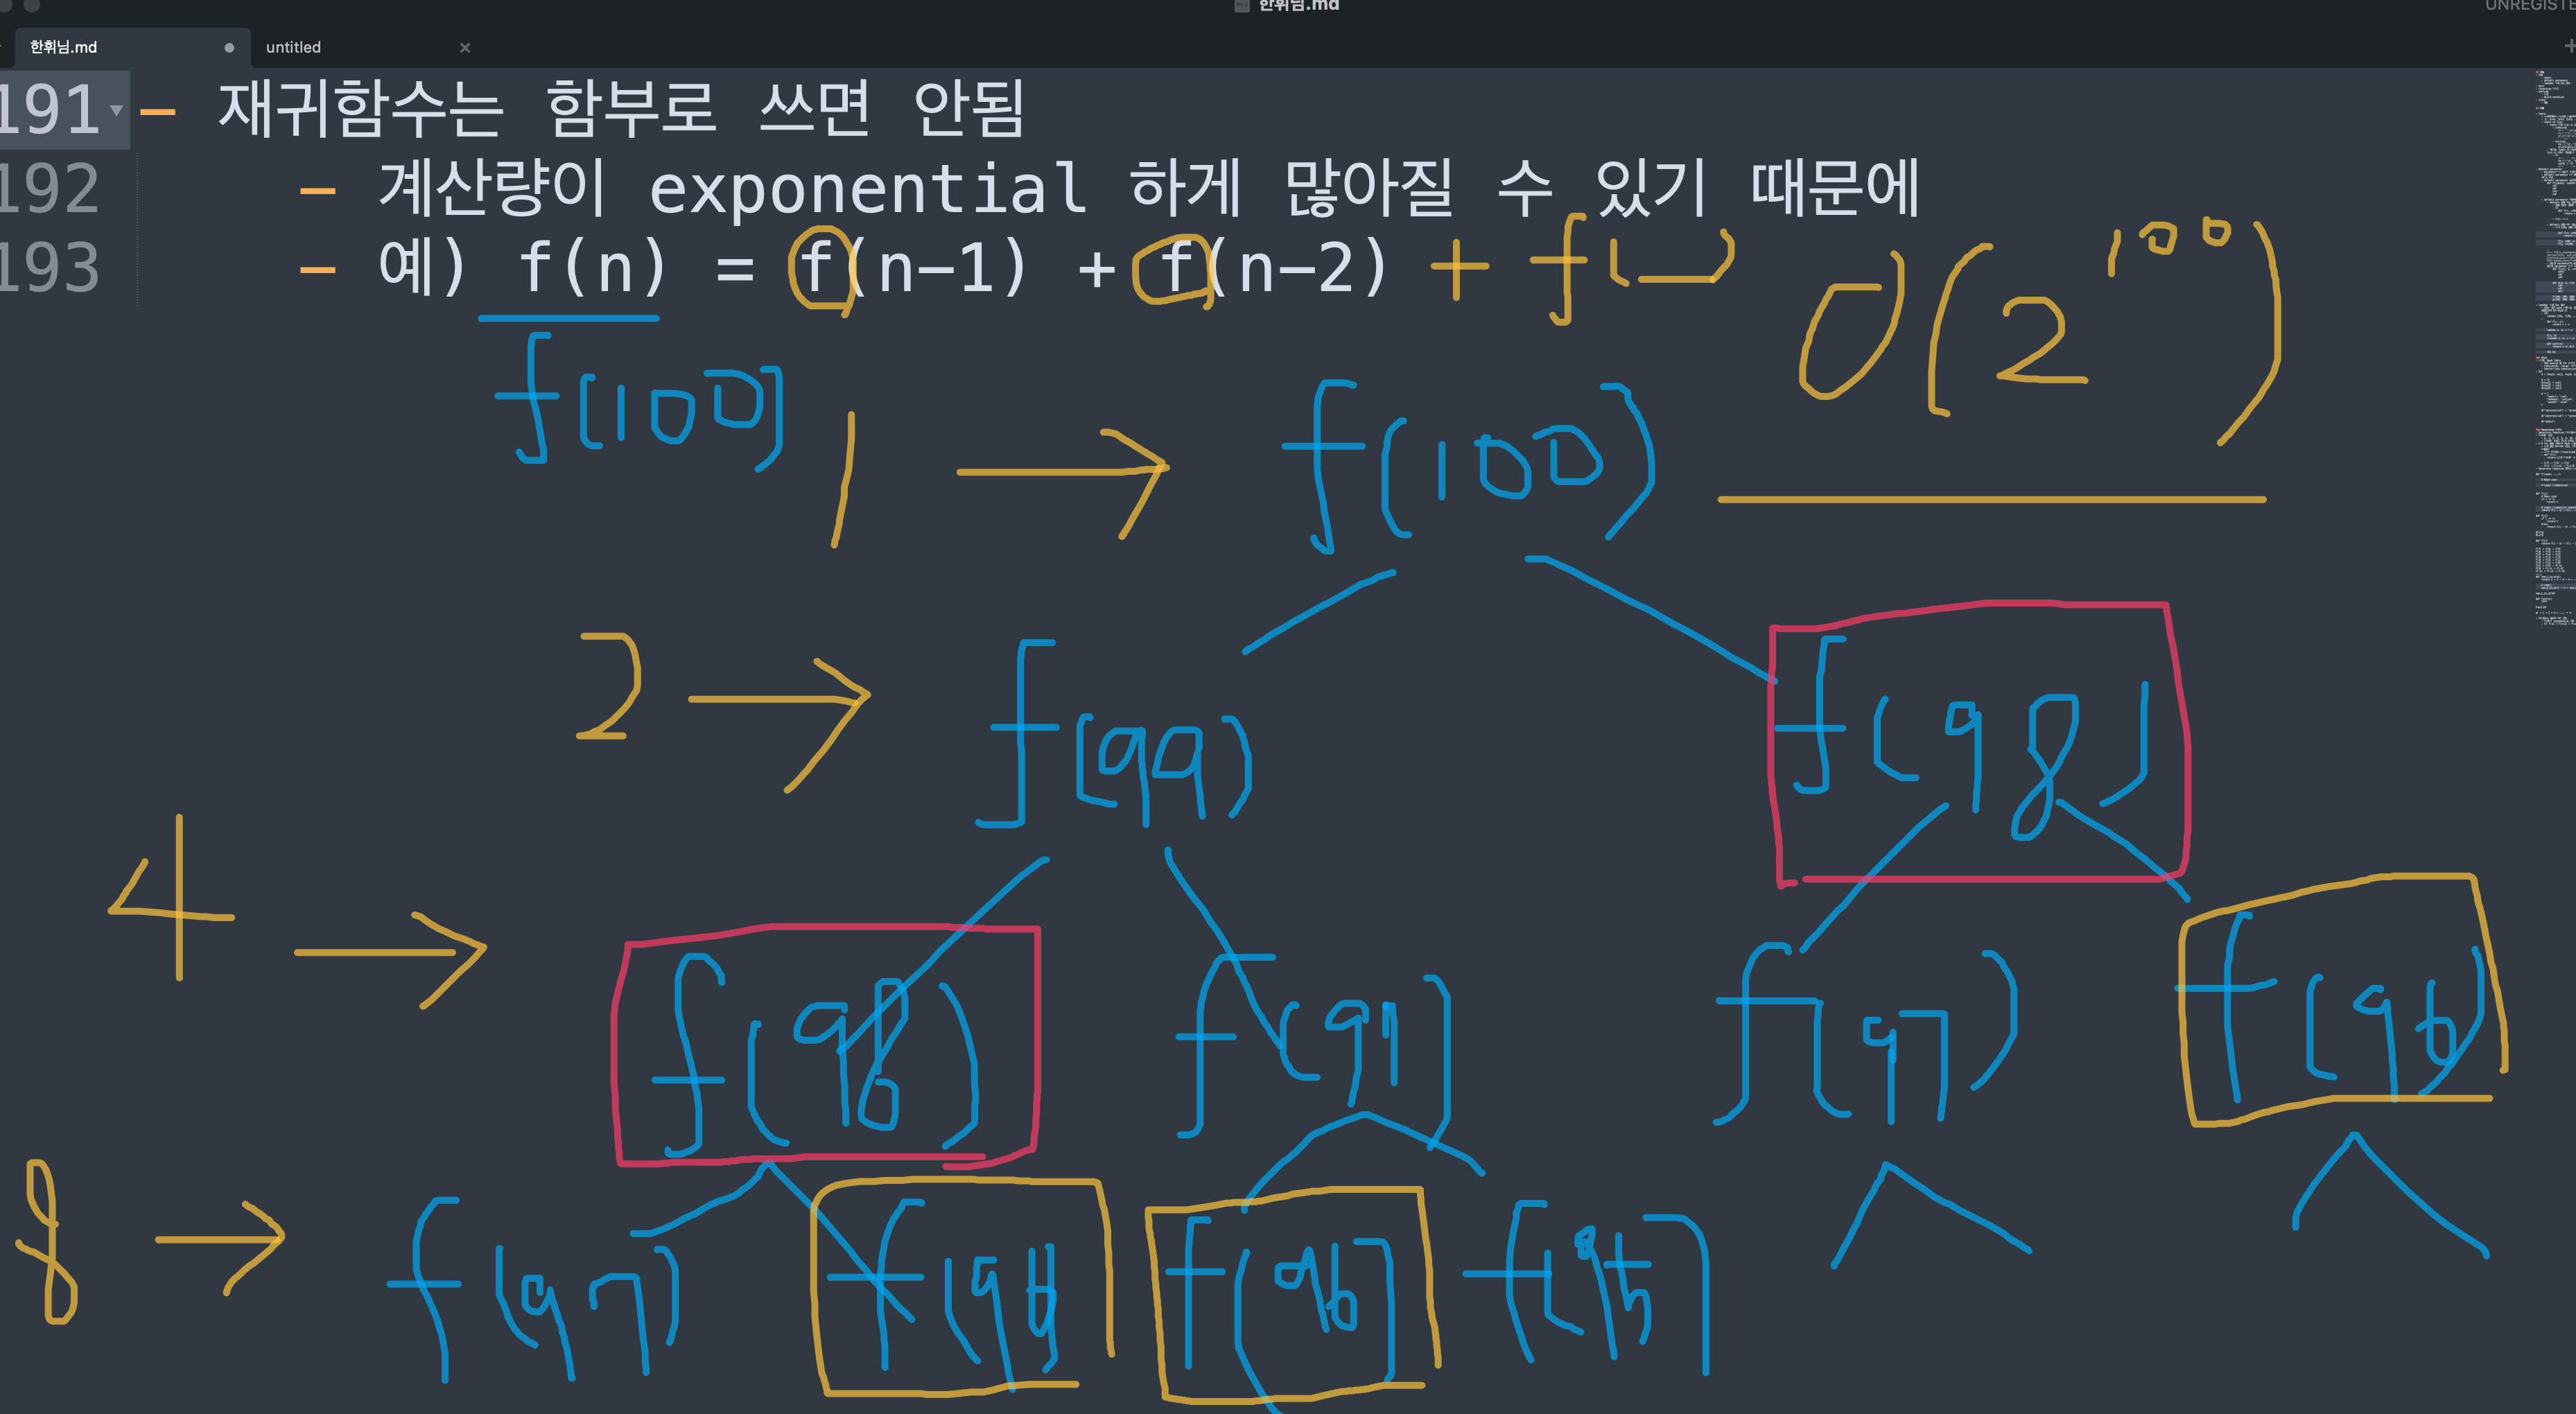 한휘님.md
UNREGISTE
한휘님.md untitled
191 - 재귀함수는 함부로 쓰면 안됨
192 - 계산량이 exponential 하게 많아질 수 있기 때문에
193 - 예) f(n) = f(n-1) + f(n-2) + f( )
O(2^100)
f(100)
1 → f(100)
2 → f(99) f(98)
4 → f(98) f(97) f(97) f(96)
8 → f(97) f(96) f(96) f(95)